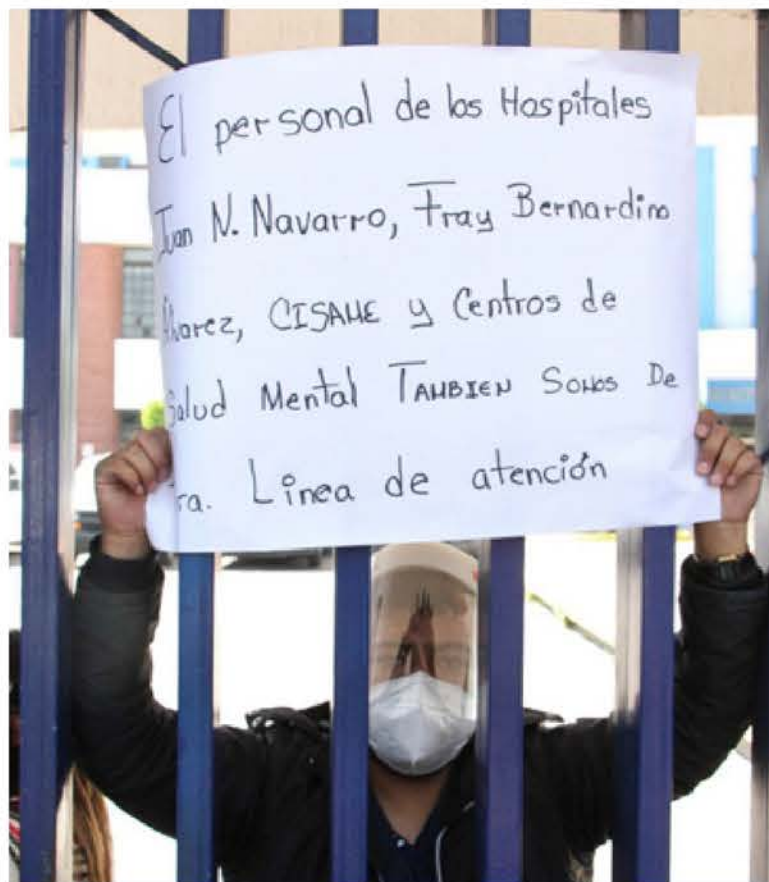 El personal de los Hospitales
Juan N. Navarro, Fray Bernardino
Álvarez, CISAME y Centros de
Salud Mental TAMBIEN SOMOS De
ra. Línea de atención